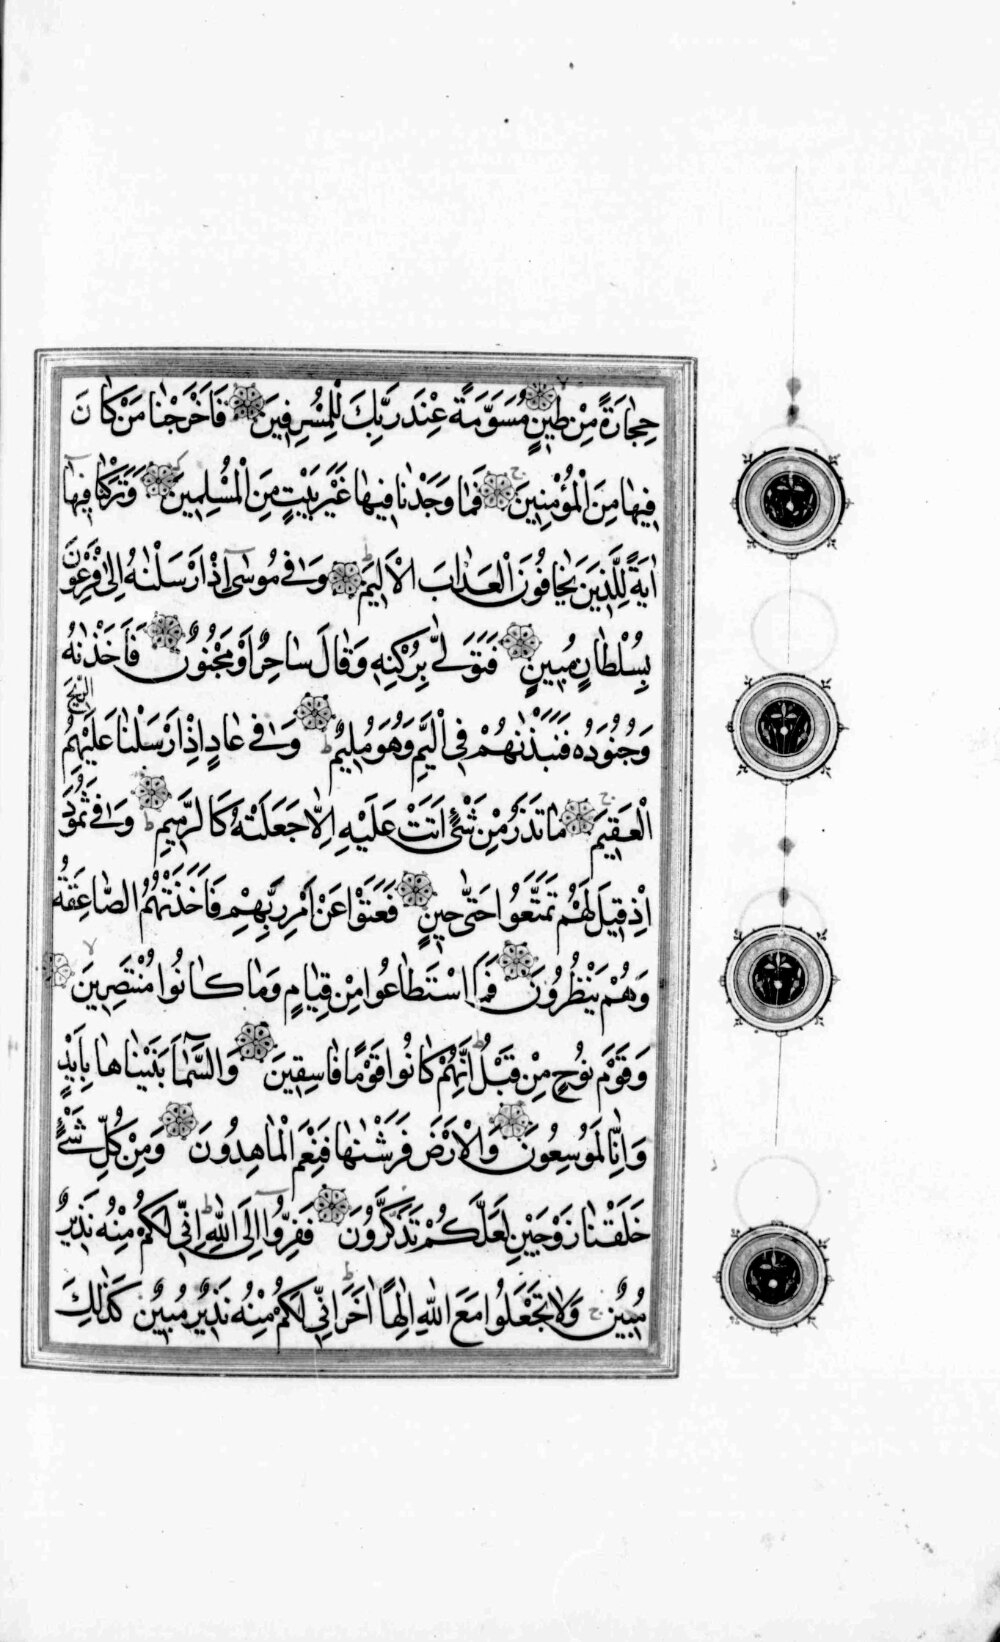 حِجَارَةً مِنْ طِينٍ مُسَوَّمَةً عِنْدَ رَبِّكَ لِلْمُسْرِفِينَ فَأَخْرَجْنَا مَنْ كَانَ
فِيهَا مِنَ الْمُؤْمِنِينَ فَمَا وَجَدْنَا فِيهَا غَيْرَ بَيْتٍ مِنَ الْمُسْلِمِينَ وَتَرَكْنَا فِيهَا
اٰيَةً لِلَّذِينَ يَخَافُونَ الْعَذَابَ الْاَلِيمَ وَفِي مُوسٰى اِذْ اَرْسَلْنٰهُ اِلٰى فِرْعَوْنَ
بِسُلْطَانٍ مُبِينٍ فَتَوَلّٰى بِرُكْنِهِ وَقَالَ سَاحِرٌ اَوْ مَجْنُونٌ فَاَخَذْنَاهُ
وَجُنُودَهُ فَنَبَذْنٰهُمْ فِي الْيَمِّ وَهُوَ مُلِيمٌ وَفِي عَادٍ اِذْ اَرْسَلْنَا عَلَيْهِمُ الرِّيحَ
الْعَقِيمَ مَا تَذَرُ مِنْ شَيْءٍ اَتَتْ عَلَيْهِ اِلَّا جَعَلَتْهُ كَالرَّمِيمِ وَفِي ثَمُودَ
اِذْ قِيلَ لَهُمْ تَمَتَّعُوا حَتّٰى حِينٍ فَعَتَوْا عَنْ اَمْرِ رَبِّهِمْ فَاَخَذَتْهُمُ الصَّاعِقَةُ
وَهُمْ يَنْظُرُونَ فَمَا اسْتَطَاعُوا مِنْ قِيَامٍ وَمَا كَانُوا مُنْتَصِرِينَ
وَقَوْمَ نُوحٍ مِنْ قَبْلُ اِنَّهُمْ كَانُوا قَوْمًا فَاسِقِينَ وَالسَّمَاءَ بَنَيْنَاهَا بِاَيْدٍ
وَاِنَّا لَمُوسِعُونَ وَالْاَرْضَ فَرَشْنٰهَا فَنِعْمَ الْمَاهِدُونَ وَمِنْ كُلِّ شَيْءٍ
خَلَقْنَا زَوْجَيْنِ لَعَلَّكُمْ تَذَكَّرُونَ فَفِرُّوا اِلَى اللّٰهِ اِنِّي لَكُمْ مِنْهُ نَذِيرٌ
مُبِينٌ وَلَا تَجْعَلُوا مَعَ اللّٰهِ اِلٰهًا اٰخَرَ اِنِّي لَكُمْ مِنْهُ نَذِيرٌ مُبِينٌ كَذٰلِكَ